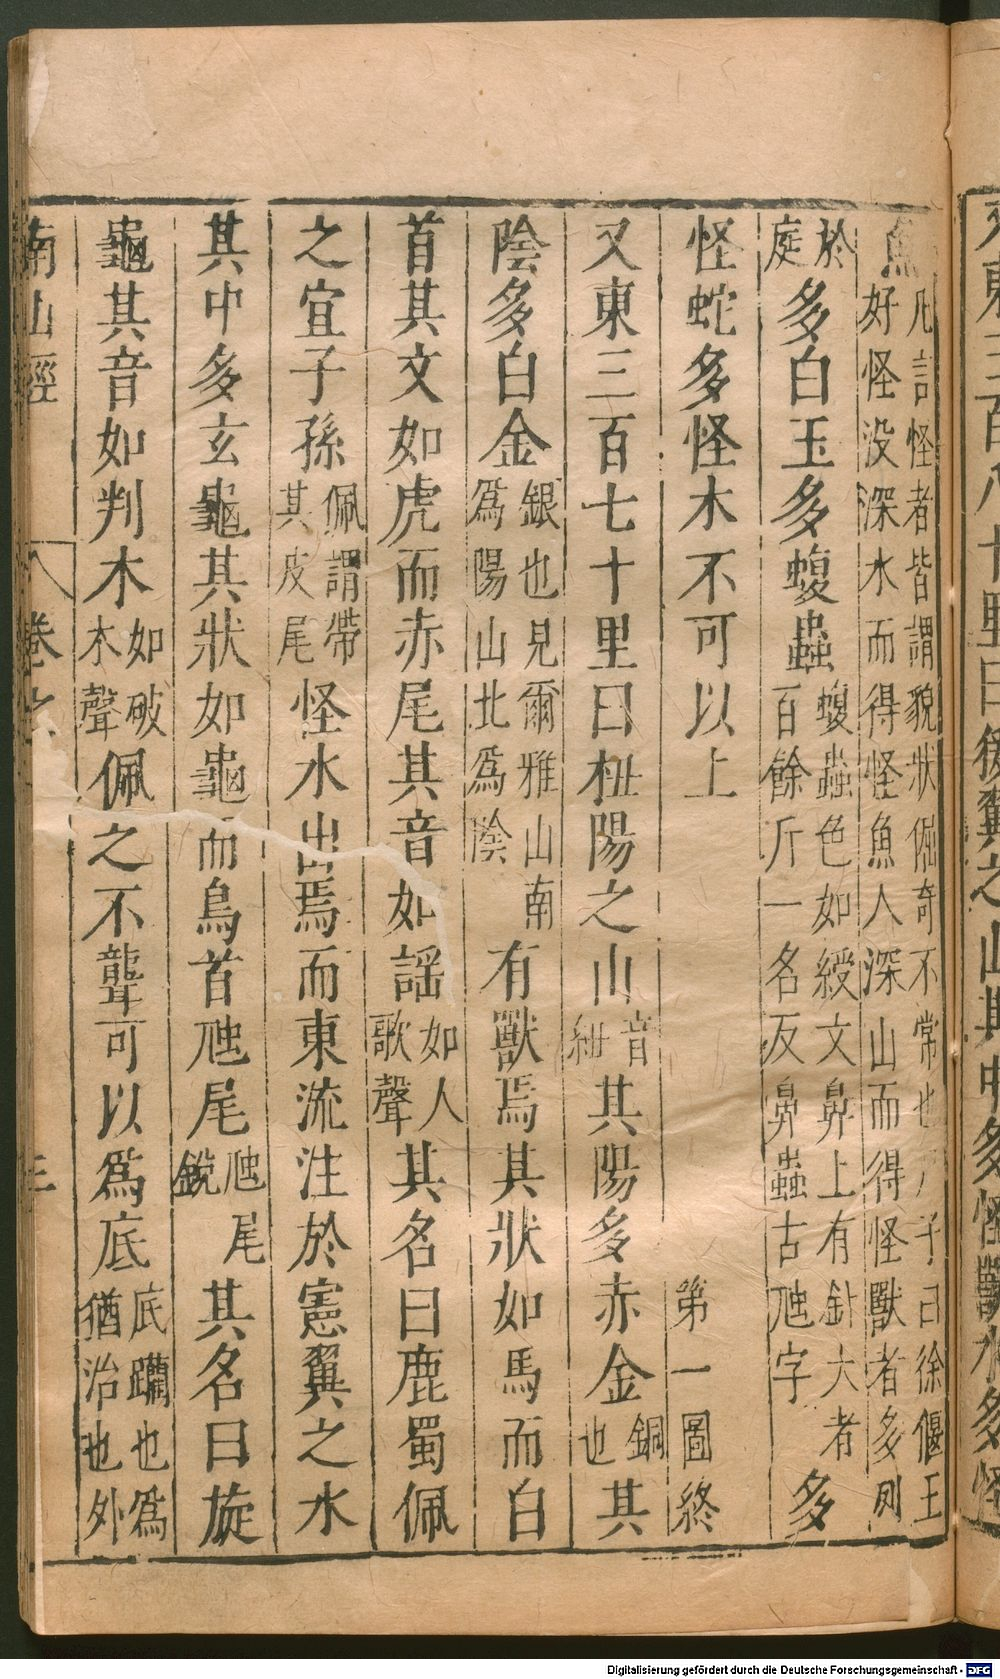 又東三百八十里曰猨翼之山其中多怪獸水多怪
魚凡言怪者皆謂貌狀倔奇不常也尸子曰徐偃王好怪没深水而得怪魚人深山而得怪獸者多列
於庭多白玉多蝮蟲蝮蟲色如綬文鼻上有針大者百餘斤一名反鼻蟲古虺字多
怪蛇多怪木不可以上 第一圖終
又東三百七十里曰杻陽之山音紐其陽多赤金銅也其
陰多白金銀也見爾雅山南爲陽山北爲陰有獸焉其狀如馬而白
首其文如虎而赤尾其音如謡如人歌聲其名曰鹿蜀佩
之宜子孫佩謂帶其皮尾怪水出焉而東流注於憲翼之水
其中多玄龜其狀如龜而鳥首虺尾虺尾銳其名曰旋
龜其音如判木如破木聲佩之不聾可以爲底底躪也爲猶治也外
南山經 卷之 三
Digitalisierung gefördert durch die Deutsche Forschungsgemeinschaft - DFG